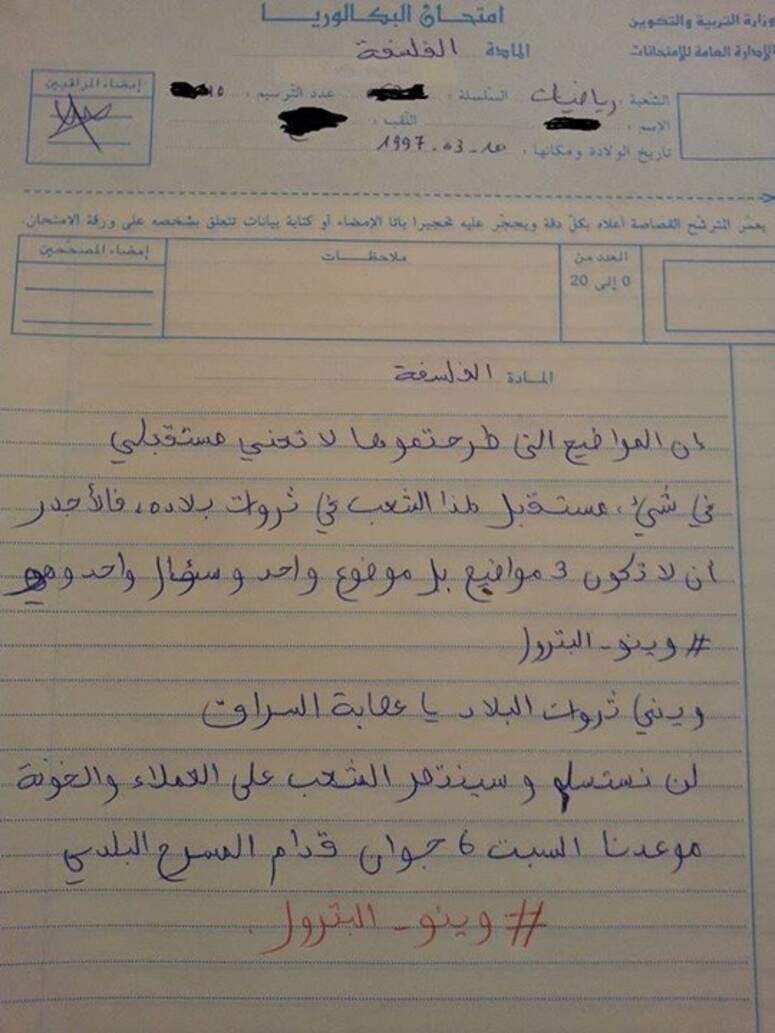 امتحان البكالوريا
وزارة التربية والتكوين
الإدارة العامة للإمتحانات
المادة الفلسفة
الشعبة : رياضيات السلسلة : عدد الترسيم :
الإسم : اللقب :
تاريخ الولادة ومكانها : 1997-03-
إمضاء المراقبين
يعمّر المترشح القصاصة أعلاه بكلّ دقة ويحجّر عليه تحجيرا باتا الإمضاء أو كتابة بيانات تتعلق بشخصه على ورقة الامتحان.
العدد من
0 إلى 20
ملاحظات
إمضاء المصححين
المادة الفلسفة
إن المواضيع التي طرحتموها لا تعني مستقبلي
في شيئ، مستقبل هذا الشعب في ثروات بلاده، فالأجدر
أن لا تكون 3 مواضيع بل موضوع واحد وسؤال واحد وهو
# وينو - البترول
ويني ثروات البلاد يا عصابة السراق
لن نستسلم وسينتصر الشعب على العملاء والخونة
موعدنا السبت 6 جوان قدام المسرح البلدي
# وينو - البترول.